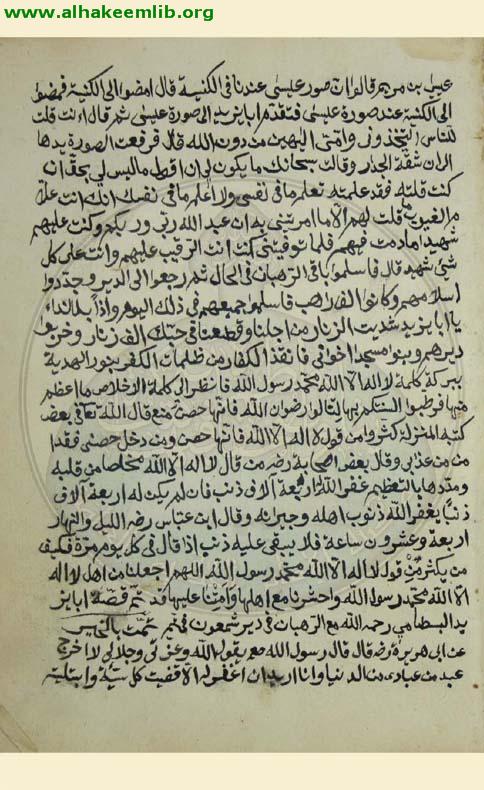 www.alhakeemlib.org
عيسى بن مريم قالوا ان صور عيسى عندنا في الكنيسة قال امضوا الى الكنيسة فمضوا
الى الكنيسة عند صورة عيسى فتقدم ابا يزيد الى صورة عيسى ثم قال ءانت قلت
للناس اتخذوني وامي الهين من دون الله قال فرفعت الصورة يدها
الى ان شقة الجدار وقالت سبحانك ما يكون لي ان اقول ما ليس لي بحق ان
كنت قلته فقد علمته تعلم ما في نفسي ولا اعلم ما في نفسك انك انت علام
الغيوب ما قلت لهم الا ما امرتني به ان عبد الله ربي وربكم وكنت عليهم
شهيدا ما دمت فيهم فلما توفيتني كنت انت الرقيب عليهم وانت على كل
شئ شهيد قال فاسلموا باقي الرهبان في الحال ثم رجعوا الى الدير وجددوا
اسلامهم وكانوا الف راهب فاسلموا جميعهم في ذلك اليوم واذا بالنداء
يا ابا يزيد شديت الزنار من اجلنا وقطعنا في حبتك الف زنار وخربوا
ديرهم وبنوا مسجدا اخوفي فانقذ الكفار من ظلمات الكفر بنور الهدية
ببركة كلمة لا اله الا الله محمد رسول الله فانظر الى كلمة الاخلاص ما اعظم
منها فرطبوا السنتكم بها لتنالوا رضوان الله فانها حصن منع قال الله تعالى في بعض
كتبه المنزلة كثروا من قول لا اله الا الله فانها حصن ومن دخل حصني فقد ا
من من عذابي وقال بعض اصحابه رضه من قال لا اله الا الله مخلصا من قلبه
ومدها بالتعظيم غفر الله اربعة آلاف ذنب فان لم يكن له اربعة آلاف
ذنبا يغفر الله ذنوب اهله وجيرانه وقال ابن عباس رضه الليل والنهار
اربعة وعشرون ساعة فلا يبقى عليه ذنب اذا قال في كل يوم مرة فكيف
من يكثر من قول لا اله الا الله محمد رسول الله اللهم اجعلنا من اهل لا اله
الا الله محمد رسول الله واحشرنا مع اهلها وامتنا عليها قد تم قصة ابا يز
يد البسطامي رحمه الله مع الرهبان في دير شمعون تمت بالخير
عن ابي هريرة رضه قال قال رسول الله صع يقول الله وعزتي وجلالي لا اخرج
عبد من عبادي من الدنيا وانا اريد ان اغفر له الا قضيت كل سيئة وابتليته